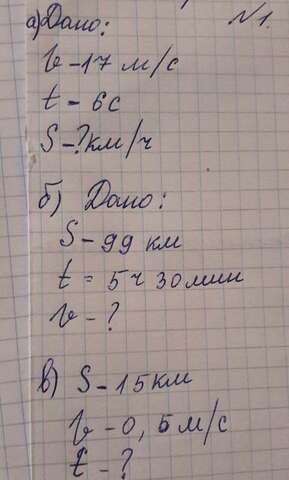 а) Дано: №1.
v – 17 м/с
t – 6с
S – ? км/ч
б) Дано:
S – 99 км
t = 5ч 30 мин
v – ?
в) S – 15 км
v – 0,5 м/с
t – ?